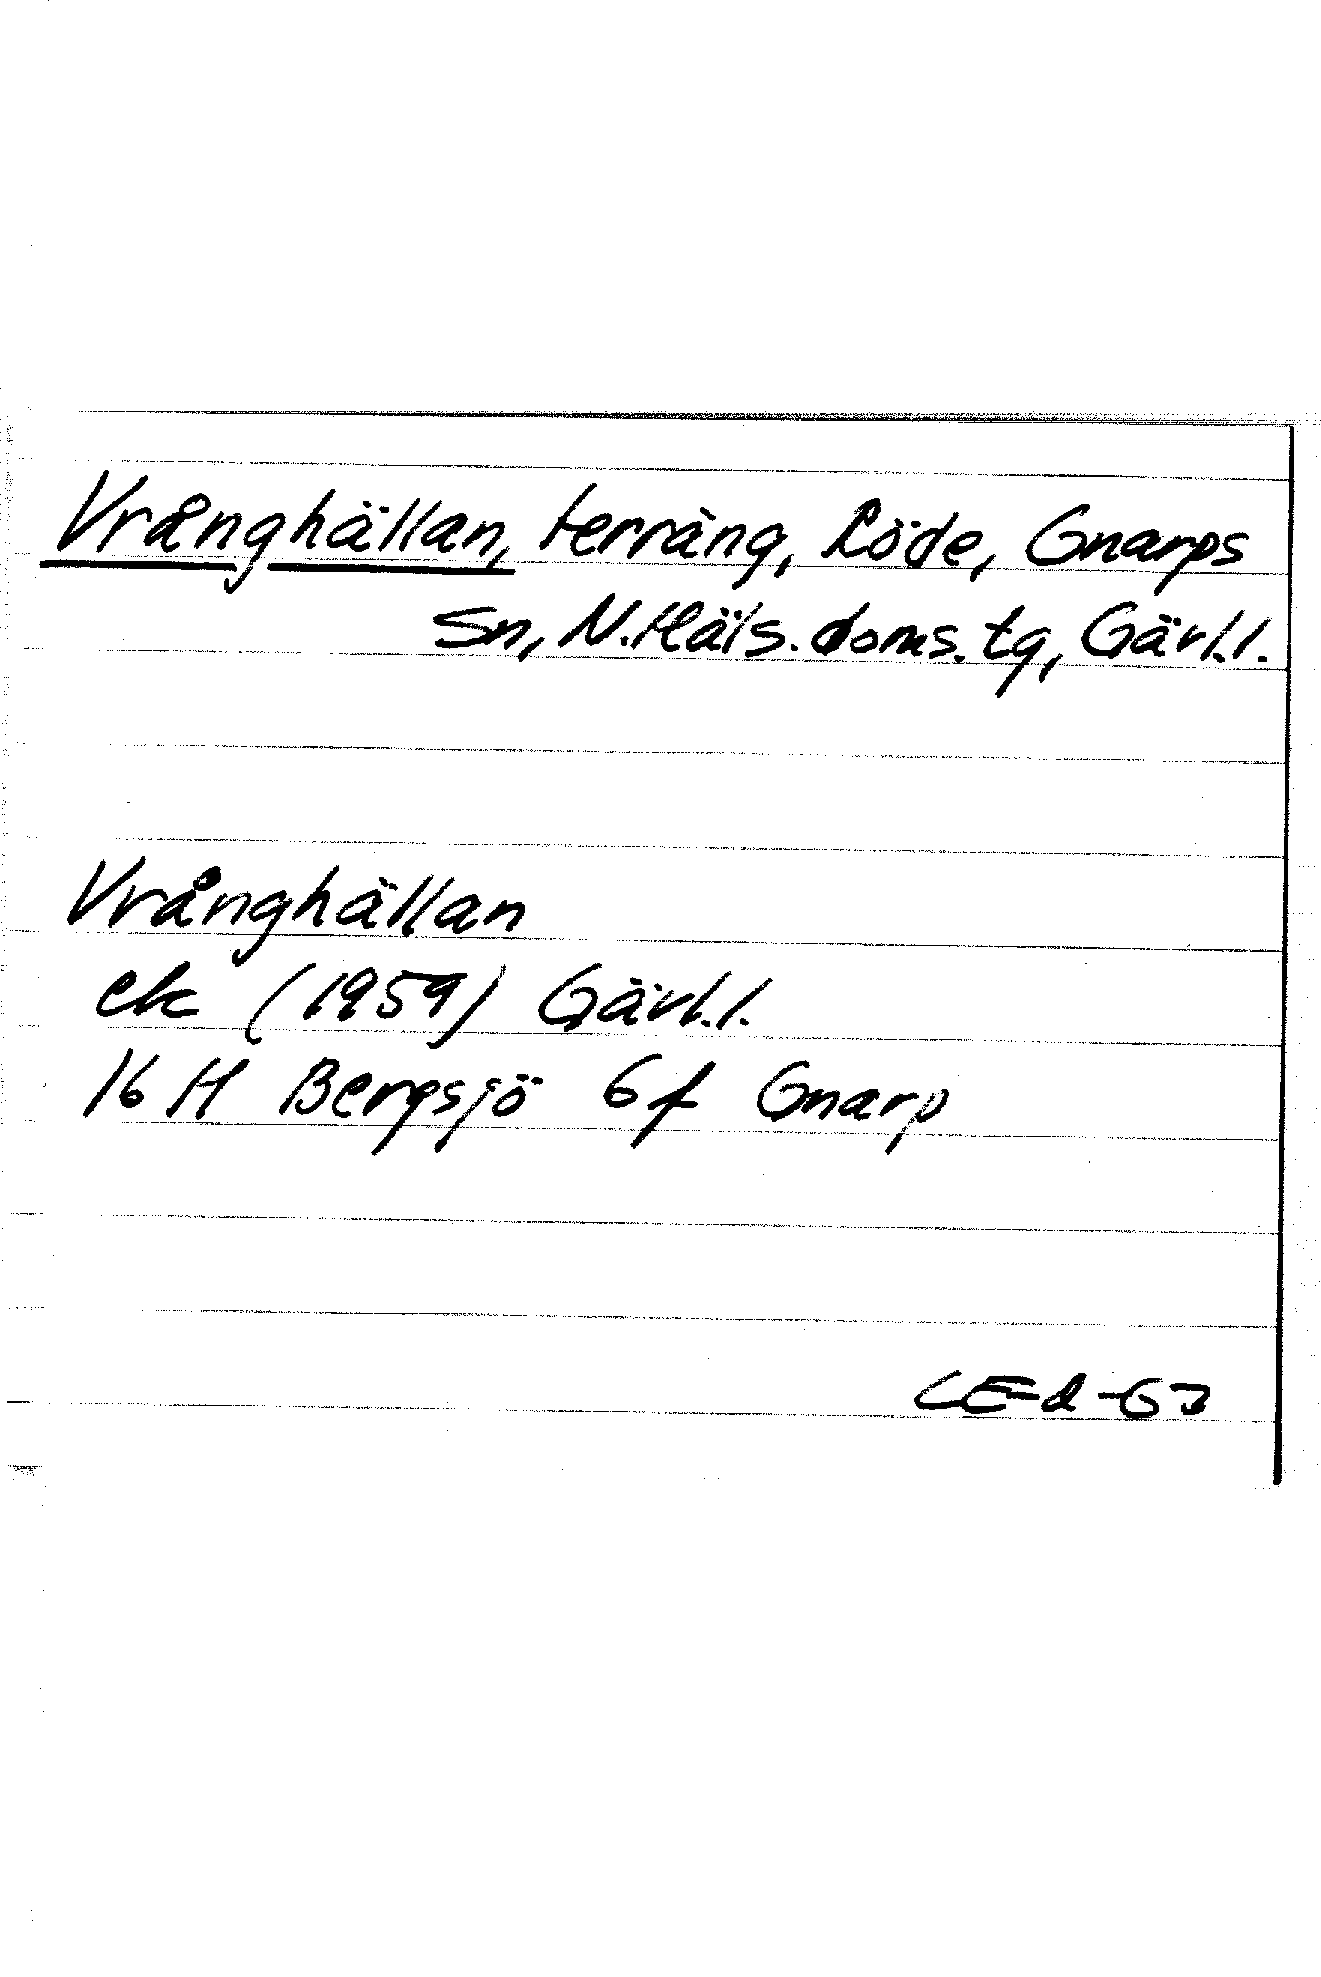 Vrånghällan, terräng, Röde, Gnarps
sn, N.Häls.doms.tg, Gävl.l.
Vrånghällan
ek (1959) Gävl.l.
16 H Bergsjö 6f Gnarp